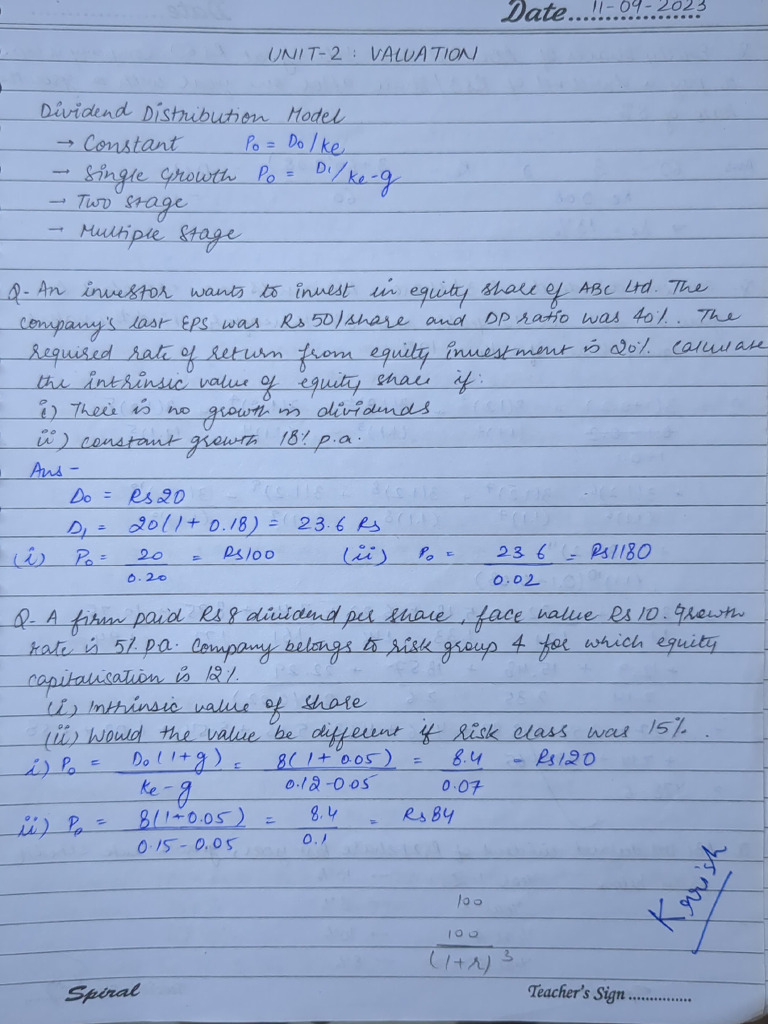 Date 11-09-2023
UNIT-2 : VALUATION
Dividend Distribution Model
→ Constant P₀ = D₀/Ke
→ Single Growth P₀ = D₁/Ke-g
→ Two Stage
→ Multiple Stage
Q- An investor wants to invest in equity share of ABC Ltd. The
company's last EPS was Rs 50/share and DP ratio was 40%. The
required rate of return from equity investment is 20%. Calculate
the intrinsic value of equity share if:
i) There is no growth in dividends
ii) constant growth 18% p.a.
Ans -
D₀ = Rs 20
D₁ = 20(1 + 0.18) = 23.6 Rs
(i) P₀ = 20/0.20 = Rs 100 (ii) P₀ = 23 6/0.02 = Rs 1180
Q- A firm paid Rs 8 dividend per share, face value Rs 10. Growth
rate is 5% p.a. Company belongs to risk group 4 for which equity
capitalisation is 12%.
(i) Intrinsic value of share
(ii) Would the value be different if risk class was 15%.
i) P₀ = D₀(1+g)/Ke-g = 8(1+0.05)/0.12-0.05 = 8.4/0.07 = Rs 120
ii) P₀ = 8(1+0.05)/0.15-0.05 = 8.4/0.1 = Rs 84
Krrish
100
100/(1+r)³
Spiral Teacher's Sign